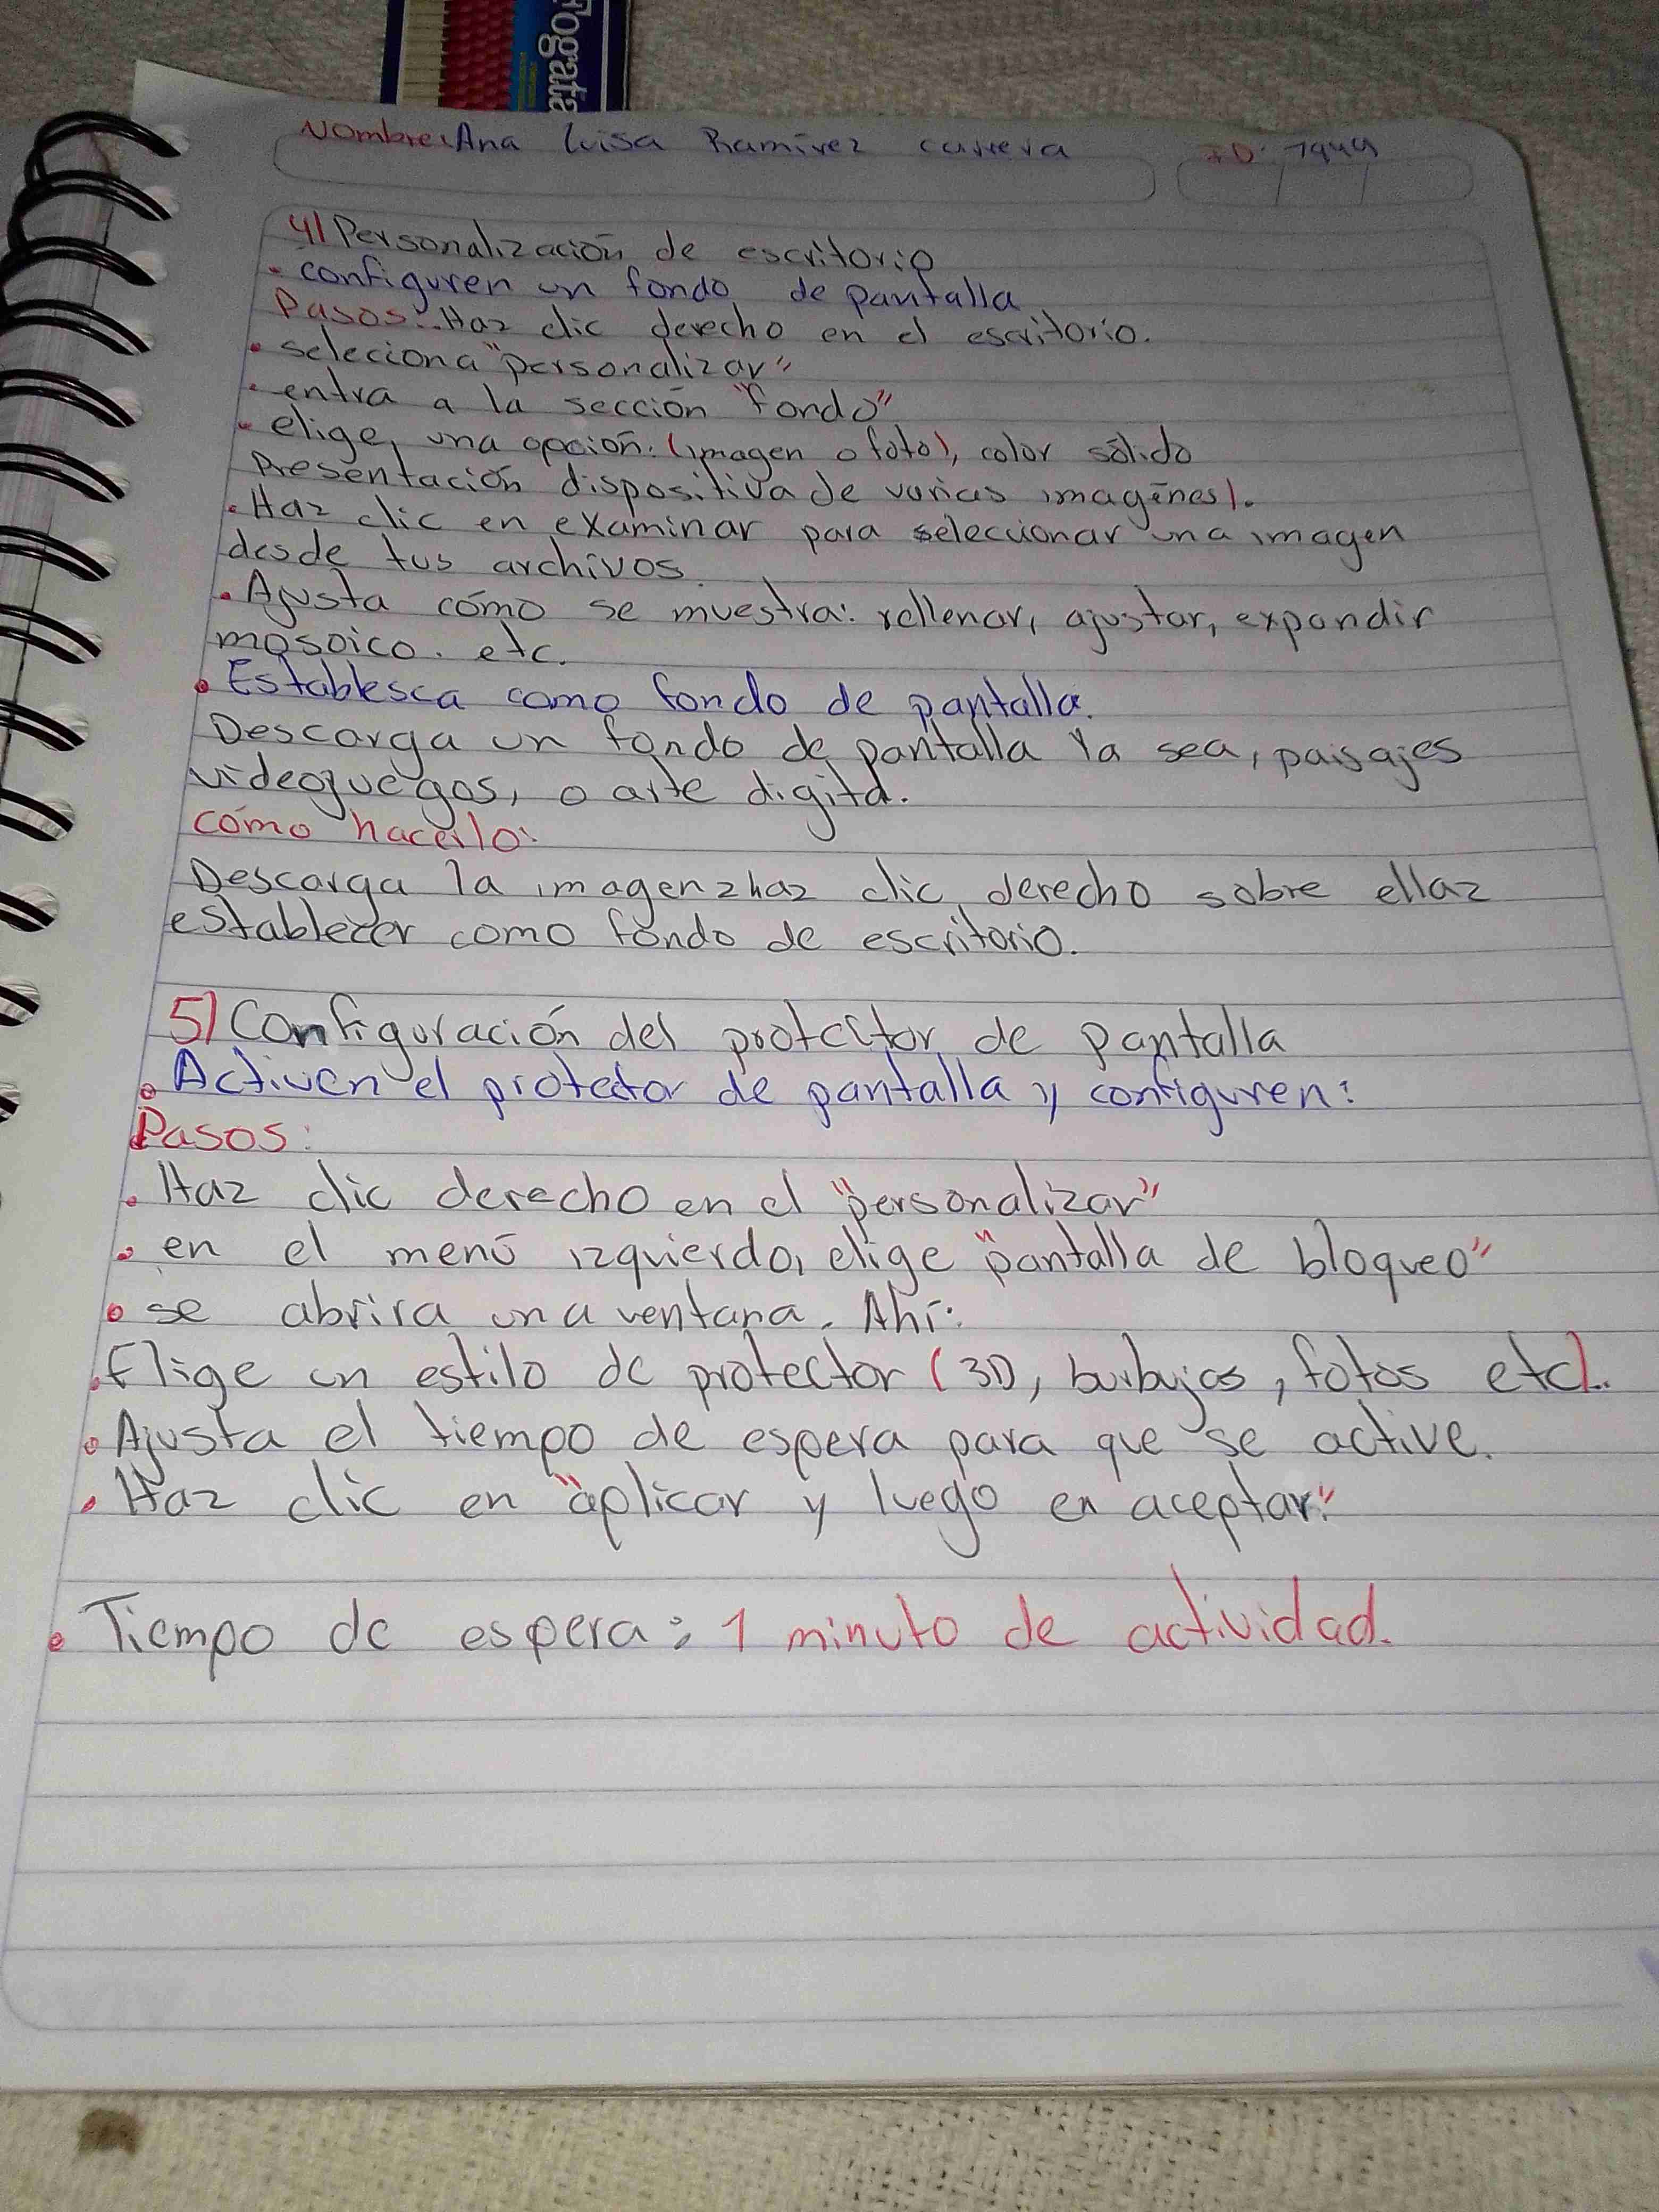 Fogata
Nombre: Ana Luisa Ramirez carrera ID: 7949
4) Personalización de escritorio
• configuren un fondo de pantalla
Pasos: Haz clic derecho en el escritorio.
• seleciona "personalizar"
• entra a la sección "fondo"
• elige, una opción: (imagen o foto), color sólido
Presentación dispositiva de varias imagénes).
• Haz clic en examinar para seleccionar una imagen
desde tus archivos.
• Ajusta cómo se muestra: rellenar, ajustar, expandir
mosaico. etc.
• Establesca como fondo de pantalla.
Descarga un fondo de pantalla Ya sea, paisajes
videojuegos, o arte digital.
cómo hacerlo:
Descarga la imagen haz clic derecho sobre ella
establecer como fondo de escritorio.
5) Configuración del protector de pantalla
• Activen el protector de pantalla y configuren:
Pasos:
• Haz clic derecho en el "personalizar"
• en el menú izquierdo, elige "pantalla de bloqueo"
• se abrira una ventana. Ahí:
• Elige un estilo de protector (3D, burbujas, fotos etc).
• Ajusta el tiempo de espera para que se active.
• Haz clic en "aplicar y luego en aceptar."
• Tiempo de espera: 1 minuto de actividad.